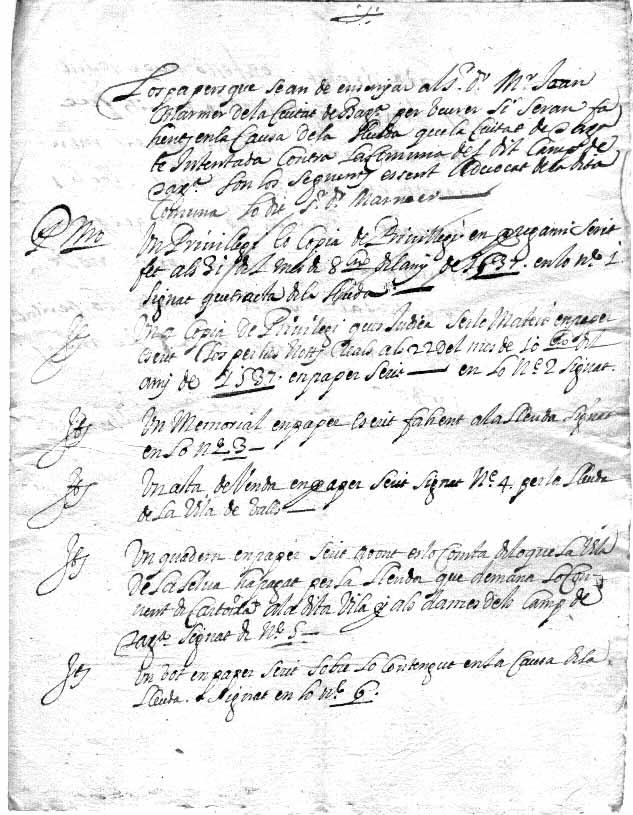 Los papers que se an de enviar al Sr. Dr. Mr. Joan
Marmer de la Ciutat de Barna. per veurer si seran fa
hents en la Causa de la Lleuda que la Ciutat de
te Intentada Contra La Comuna del dit Camp de
Tarna. son los seguents essent Advocat de la dita
Comuna lo dit Sr. Dr. Marmer
Pmo Un Privilegi o Copia de Privilegi en pergami scrit
fet als 31 del mes de 8bre del any de 1637. en lo no. 1
signat que tracta de la lleuda
It Una Copia de Privilegi que se Judica ser lo Mateix en paper
escrit clos per tres Notts als 22 del mes de 10bre del
any de 1537. en paper scrit en lo No. 2 signat.
It Un Memorial en paper escrit fahent a la Lleuda signat
en lo No. 3
It Un acta de Venda en paper scrit signat No. 4. per la Lleuda
de la Vila de Valls
It Un quadern en paper scrit ahont es lo Compta de lo que la Vila
de La Selva ha pagat per la Lleuda que demana lo Con
vent de a la dita Vila y als dames dels Camp de
Tarna. signat de No. 5
It Un vot en paper scrit sobre lo Contengut en la Causa de la
Lleuda. signat en lo no. 6.